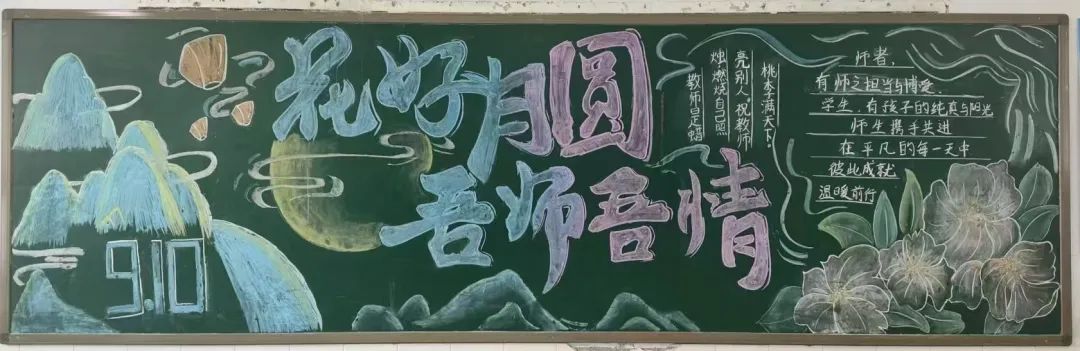 花好月圆
吾师吾情
9.10
教师是蜡
烛燃烧自己照
亮别人，祝教师
桃李满天下。
师者，
有师之担当与博爱，
学生，有孩子的纯真与阳光
师生携手共进
在平凡的每一天中
彼此成就
温暖前行